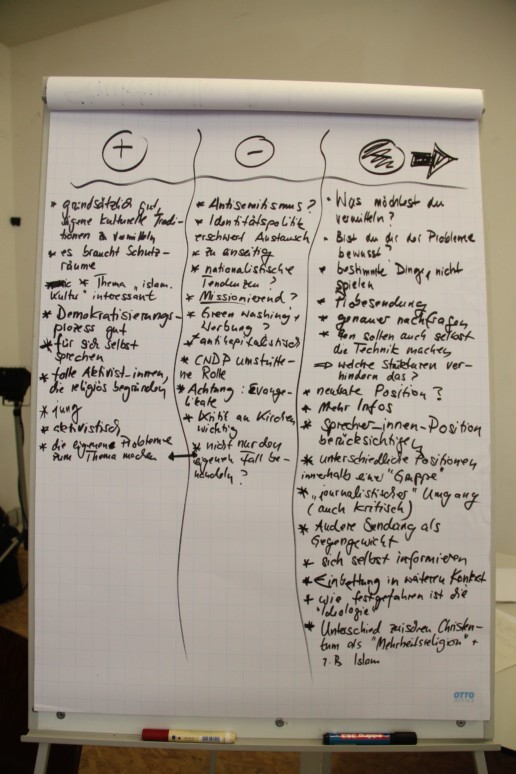 +
* grundsätzlich gut,
eigene kulturelle Tradi-
tionen zu vermitteln
* es braucht Schutz-
räume
* Thema „islam.
Kultur" interessant
* Demokratisierungs-
prozess gut
* für sich selbst
sprechen
* tolle Aktivist-innen,
die religiös begründen
* jung
* aktivistisch
* die eigenen Probleme
zum Thema machen
-
* Antisemitismus?
* Identitätspolitik
erschwert Austausch
* zu einseitig
* nationalistische
Tendenzen?
* Missionierend?
* Green washing +
Werbung?
* antikapitalistisch
* CNDP umstritte-
ne Rolle
* Achtung: Evange-
likale
* Kritik an Kirchen
wichtig
* nicht nur den
eigenen Fall be-
handeln?
* Was möchtest du
vermitteln?
* Bist du dir der Probleme
bewusst?
* bestimmte Dinge nicht
spielen
* Probesendung
* genauer nachfragen
* sollen auch selbst
die Technik machen
⇒ welche Strukturen ver-
hindern das?
* neutrale Position?
+ Mehr Infos
* Sprecher_innen-Position
berücksichtigen
* unterschiedliche Positionen
innerhalb einer "Gruppe"
* „journalistischer" Umgang
(auch kritisch)
* Andere Sendung als
Gegengewicht
* sich selbst informieren
* Einbettung in weiteren Kontext
+ wie festgefahren ist die
"Ideologie"
* Unterschied zwischen Christen-
tum als "Mehrheitsreligion" +
z.B. Islam
OTTO
OFFICE